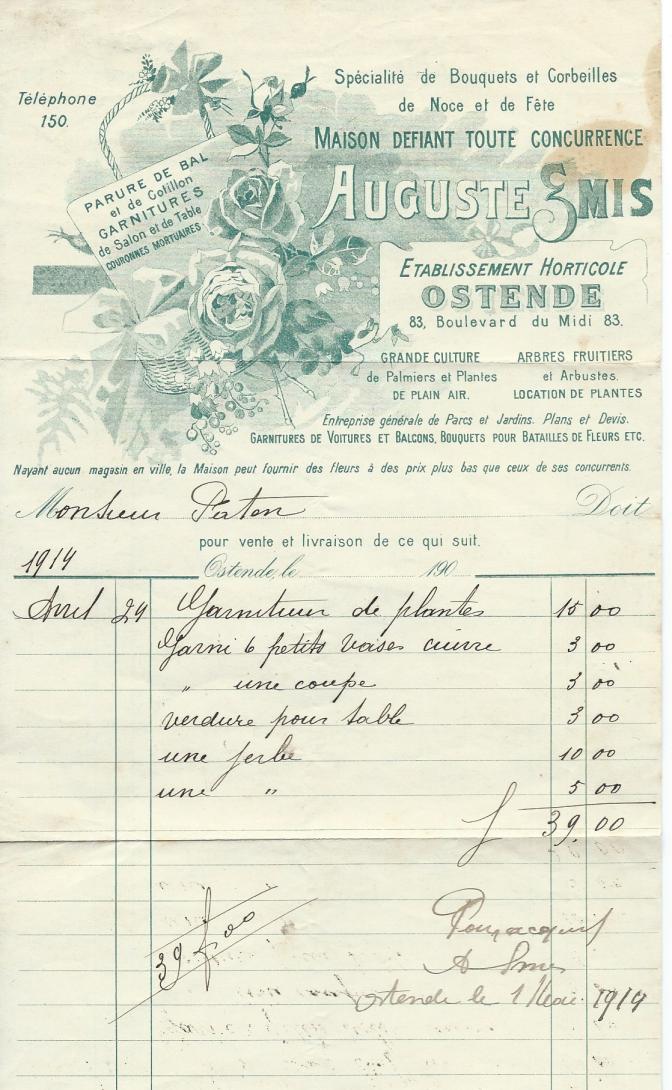 Téléphone
150.
Spécialité de Bouquets et Corbeilles
de Noce et de Fête
MAISON DEFIANT TOUTE CONCURRENCE
AUGUSTE SMIS
PARURE DE BAL
et de Cotillon
GARNITURES
de Salon et de Table
COURONNES MORTUAIRES
ETABLISSEMENT HORTICOLE
OSTENDE
83, Boulevard du Midi 83.
GRANDE CULTURE
de Palmiers et Plantes
DE PLAIN AIR.
ARBRES FRUITIERS
et Arbustes.
LOCATION DE PLANTES
Entreprise générale de Parcs et Jardins. Plans et Devis.
GARNITURES DE VOITURES ET BALCONS, BOUQUETS POUR BATAILLES DE FLEURS ETC.
Nayant aucun magasin en ville, la Maison peut fournir des fleurs à des prix plus bas que ceux de ses concurrents.
Monsieur Doit
pour vente et livraison de ce qui suit.
1914 Ostende, le 190
Avril 24 Garniture de plantes 15 00
Garni 6 petits vases cuivre 3 00
" une coupe 3 00
verdure pour table 3 00
une jerbe 10 00
une " 5 00
f 39.00
39 f 00
Pour acquit
A Smis
Ostende le 1 Mai 1914